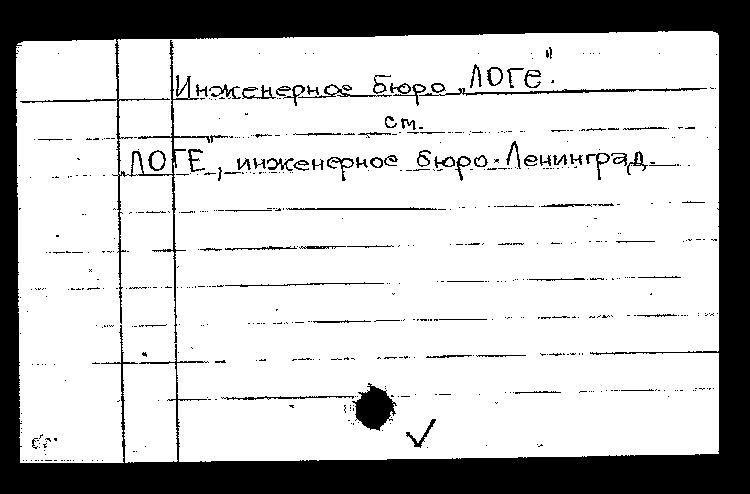 Инженерное бюро „ЛОГЕ".
см.
„ЛОГЕ", инженерное бюро. Ленинград.